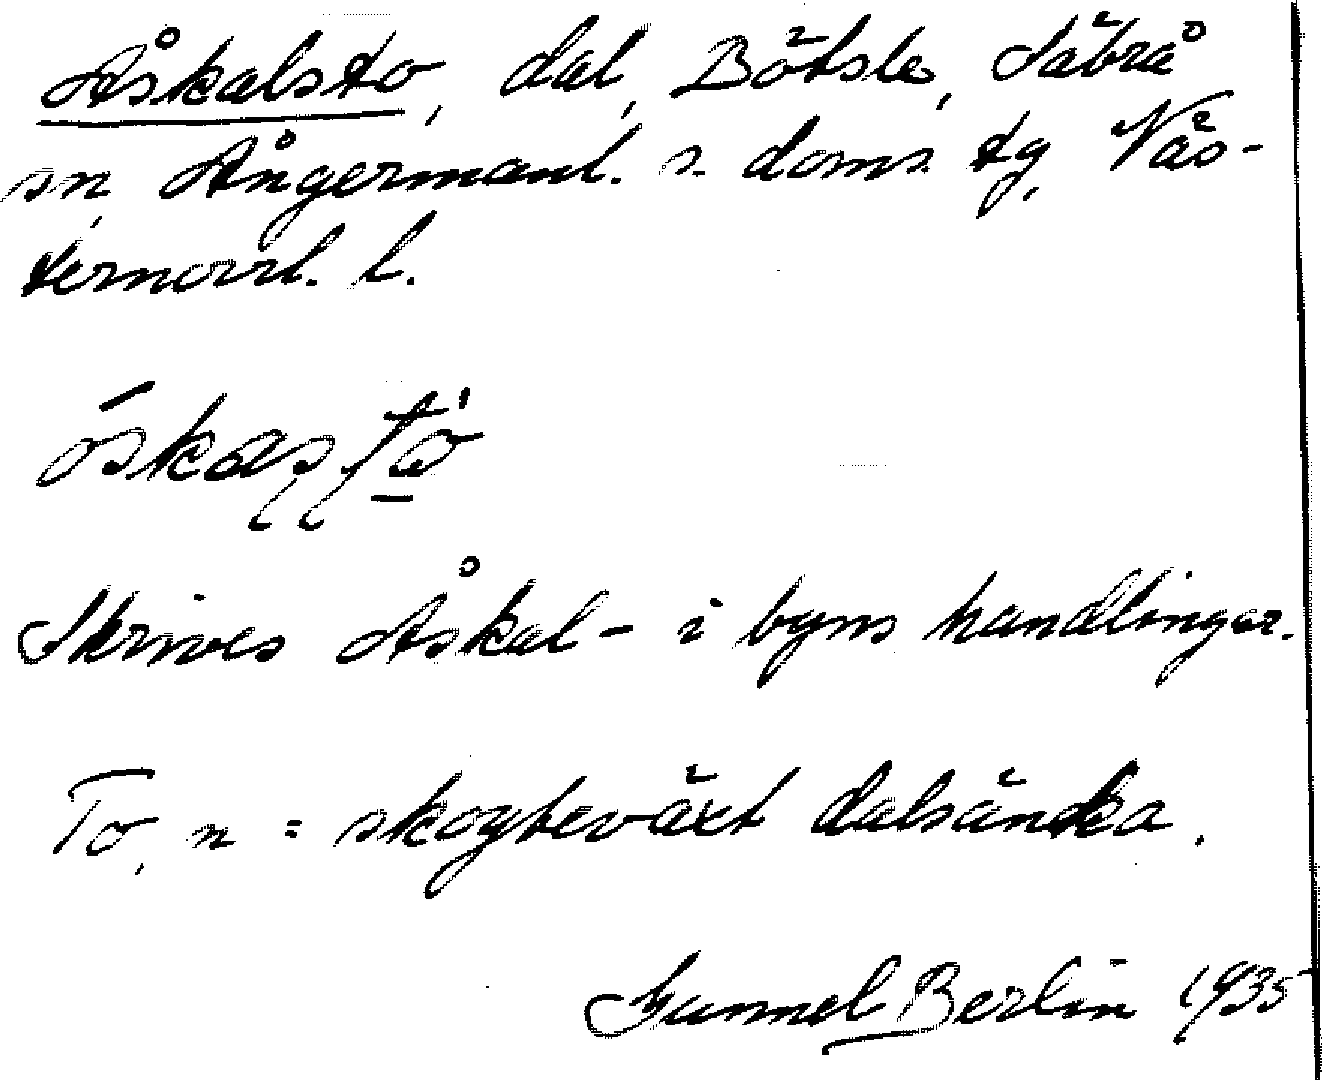 Åskalsto, dal, Bötsle, Säbrå
sn, Ångermanl. s. doms. tg, Väs-
ternorrl. l.
Skrives Åskal- i byns handlingar.
To, n = skogbeväxt dalsänka.
Gunnel Berlin 1935